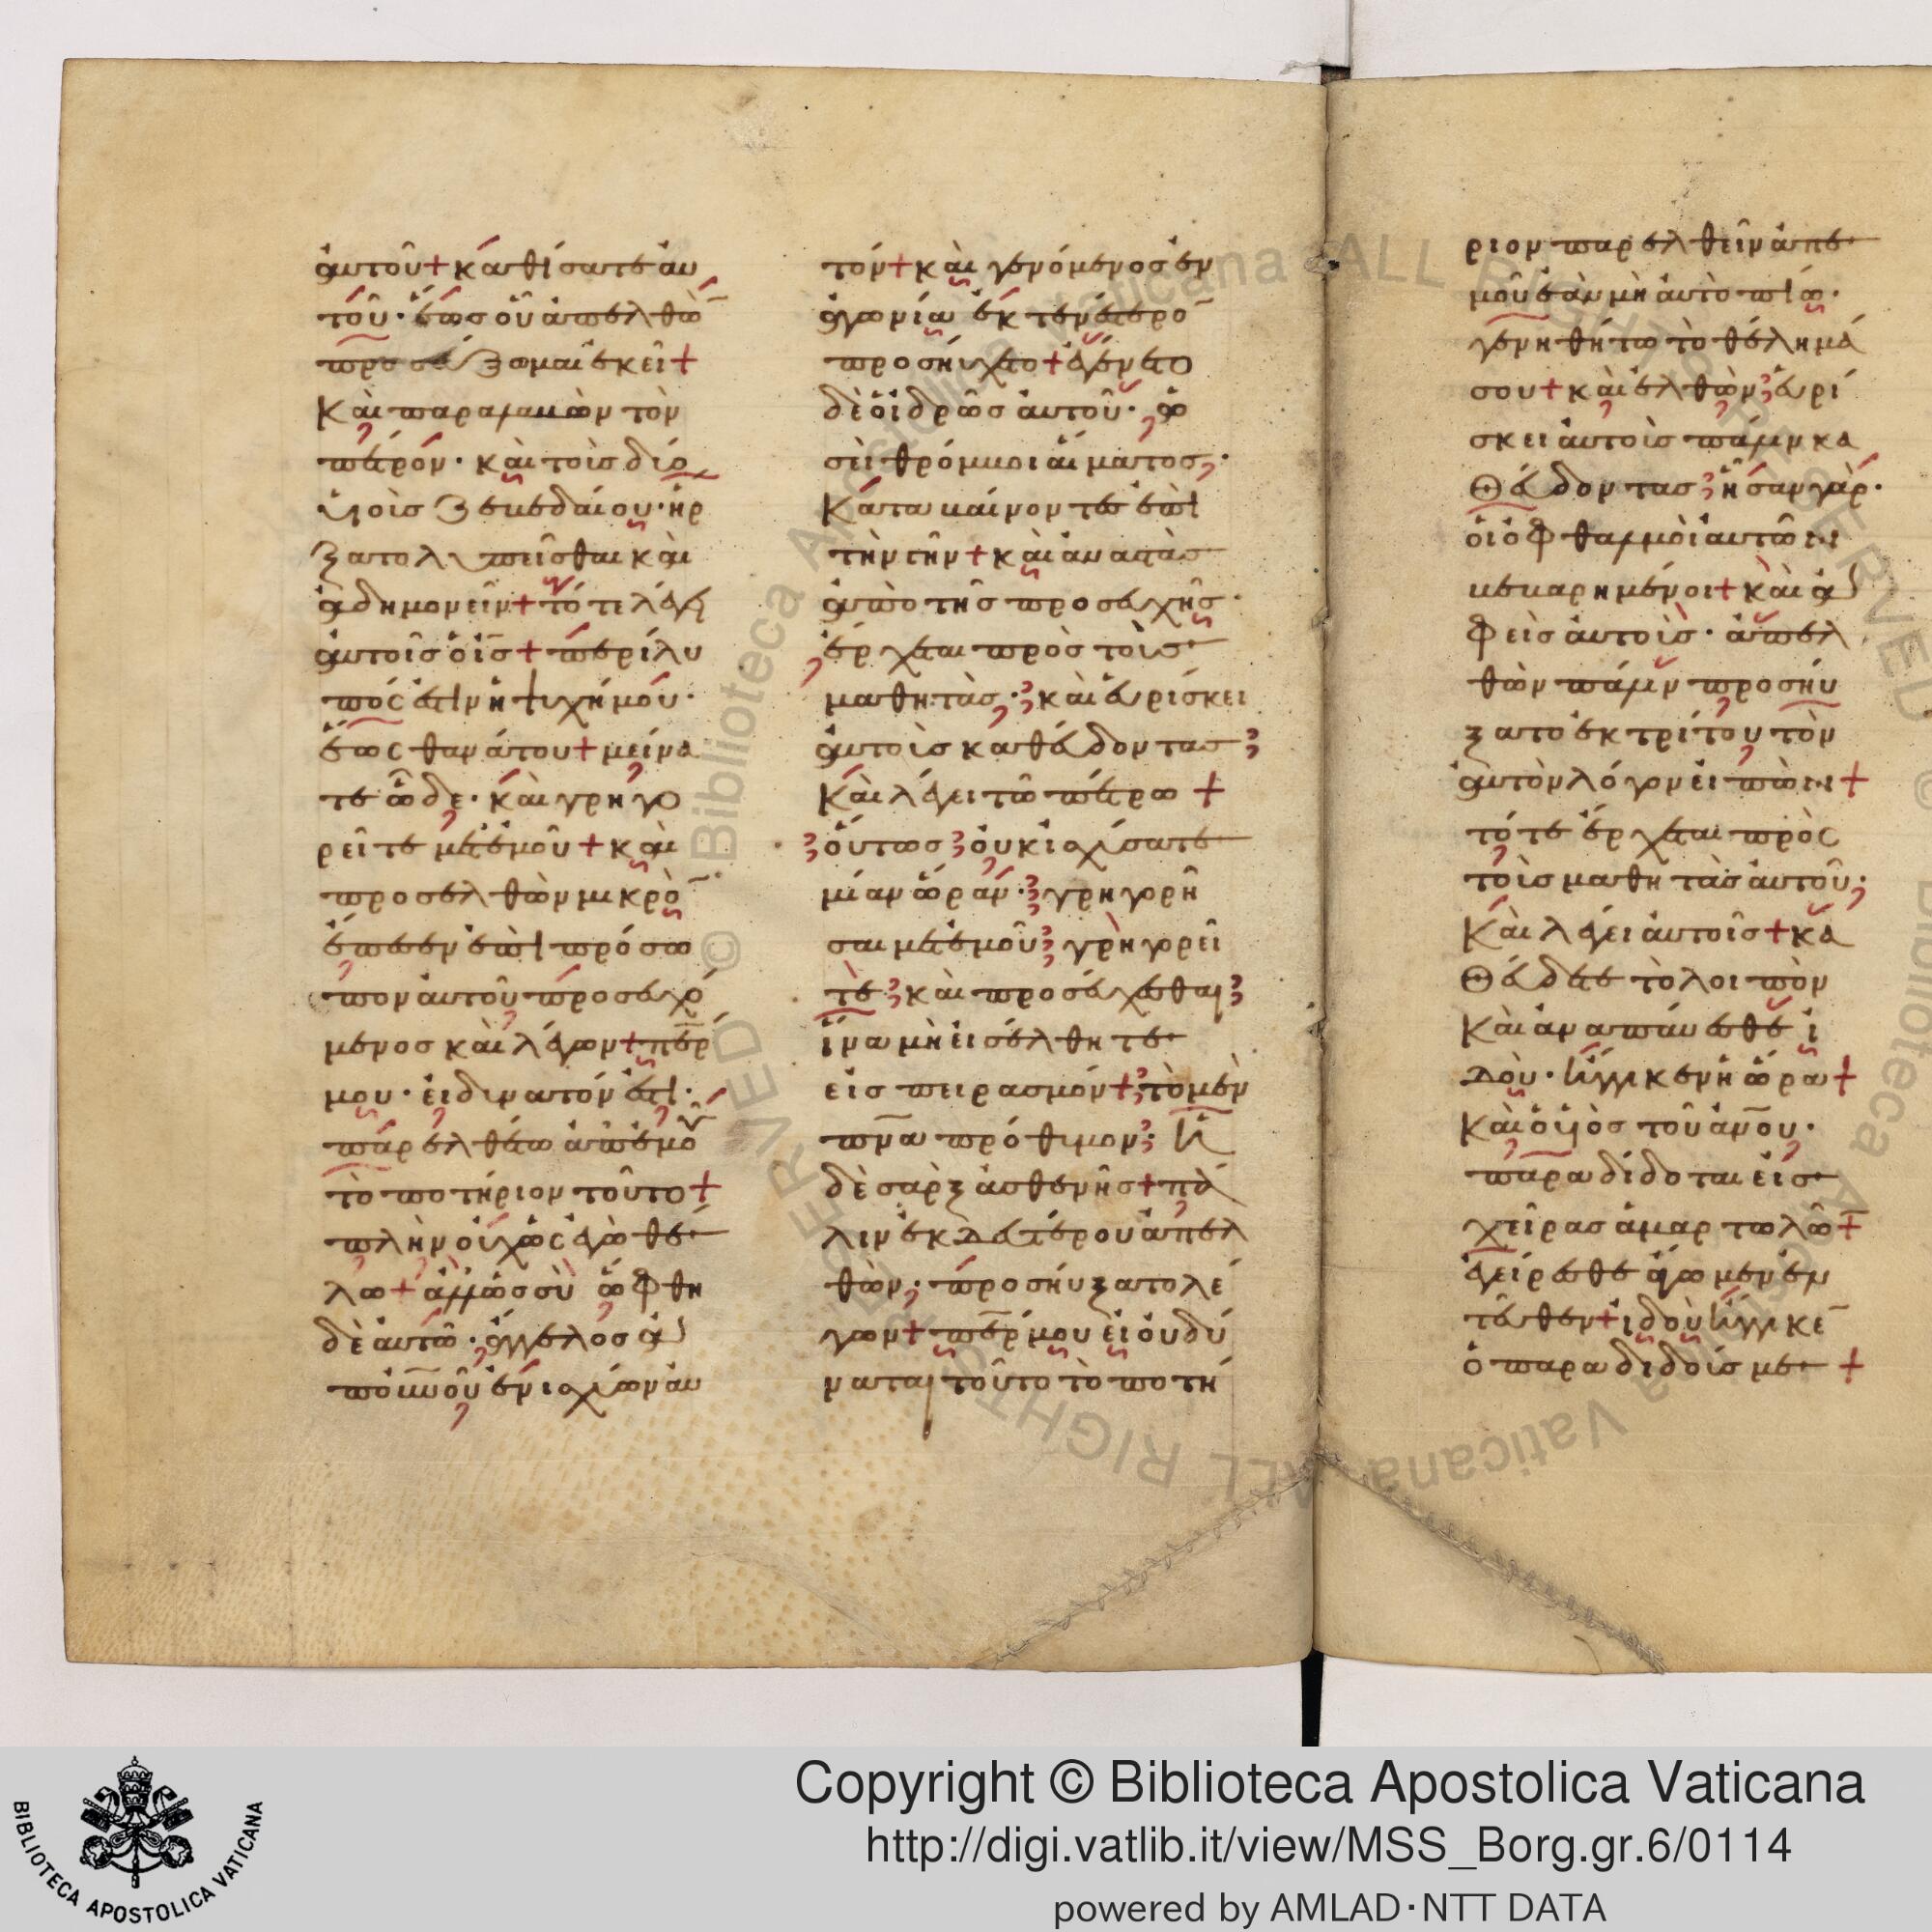 αὐτοῦ + καθίσατε αὐ
τοῦ · ἕως οὗ ἀπελθὼ̄
προσεύξωμαι ἐκεῖ +
Καὶ παραλαβὼν τὸν
πέτρον · καὶ τοὺς δύο
ὑιοὺς ζεβεδαίου · ἤρ
ξατο λυπεῖσθαι καὶ
ἀδημονεῖν + τότε λέγει
αὐτοῖς ὁ ἰ̄ς̄ + περίλυ
πός ἐστιν ἡ ψυχή μου ·
ἕως θανάτου + μείνα
τε ὧδε · καὶ γρηγο
ρεῖτε μετ' ἐμοῦ + καὶ
προσελθὼν μικρὸ̄
ἔπεσεν ἐπὶ πρόσω
πον αὐτοῦ προσευχό
μενος καὶ λέγων + πε̄ρ
μου · εἰ δυνατόν ἐστι ·
παρελθέτω ἀπ' ἐμοῦ
τὸ ποτήριον τοῦτο +
πλὴν οὐχ ὡς ἐγὼ θέ
λω + ἀλλ' ὡς σὺ ὤφθη
δὲ αὐτῶ · ἄγγελος ἀ
π' οὐ̄ν̄οῦ ἐνισχύων αὐ
τόν + καὶ γενόμενος ἐν
ἀγωνία ἐκτενέστερο̄
προσηύχετο + ἐγένετο
δὲ ὁ ἱδρὼς αὐτοῦ · ὡ
σεὶ θρόμβοι αἵματος ·
Καταβαίνοντες ἐπὶ
τὴν γῆν + καὶ ἀναστὰς
ἀπὸ τῆς προσευχῆς ·
ἔρχεται πρὸς τοὺς
μαθητὰς · καὶ εὑρίσκει
αὐτοὺς καθεύδοντας
Καὶ λέγει τῶ πέτρω +
οὕτως οὐκ ἰσχύσατε
μίαν ὥραν · γρηγορῆ
σαι μετ' ἐμοῦ γρηγορεῖ
τε καὶ προσεύχεσθαι
ἵνα μὴ εἰσέλθητε
εἰς πειρασμόν + τὸ μὲν
πν̄α πρόθυμον · ἡ
δὲ σὰρξ ἀσθενής + πά
λιν ἐκ δευτέρου ἀπελ
θὼν · προσηύξατο λέ
γων + πε̄ρ μου εἰ οὐ δύ
ναται τοῦτο τὸ ποτή
ριον παρελθεῖν ἀπ' ἐ
μοῦ ἐὰν μὴ αὐτὸ πίω ·
γενηθήτω τὸ θέλημά
σου + καὶ ἐλθὼν εὑρί
σκει αὐτοὺς πάλιν κα
θεύδοντας ἦσαν γὰρ ·
οἱ ὀφθαλμοὶ αὐτῶν
βεβαρημένοι + καὶ ἀ
φεὶς αὐτοὺς · ἀπελ
θὼν πάλιν προσηύ
ξατο ἐκ τρίτου τὸν
αὐτὸν λόγον εἰπὼν +
τότε ἔρχεται πρὸς
τοὺς μαθητὰς αὐτοῦ ·
Καὶ λέγει αὐτοῖς + κα
θεύδετε τὸ λοιπὸν
Καὶ ἀναπαύεσθε ἰ
δοὺ · ἤγγικεν ἡ ὥρα +
Καὶ ὁ υἱὸς τοῦ ἀν̄ου ·
παραδίδοται εἰς
χεῖρας ἁμαρτωλῶ̄ +
ἐγείρεσθε ἄγωμεν ἐν
τεῦθεν + ἰδοὺ ἤγγικε̄
ὁ παραδιδούς με +
Copyright © Biblioteca Apostolica Vaticana
http://digi.vatlib.it/view/MSS_Borg.gr.6/0114
powered by AMLAD·NTT DATA
BIBLIOTECA APOSTOLICA VATICANA